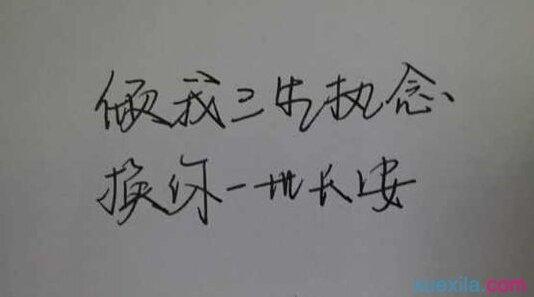 倾我三生执念、
换你一世长安
xuexila.com